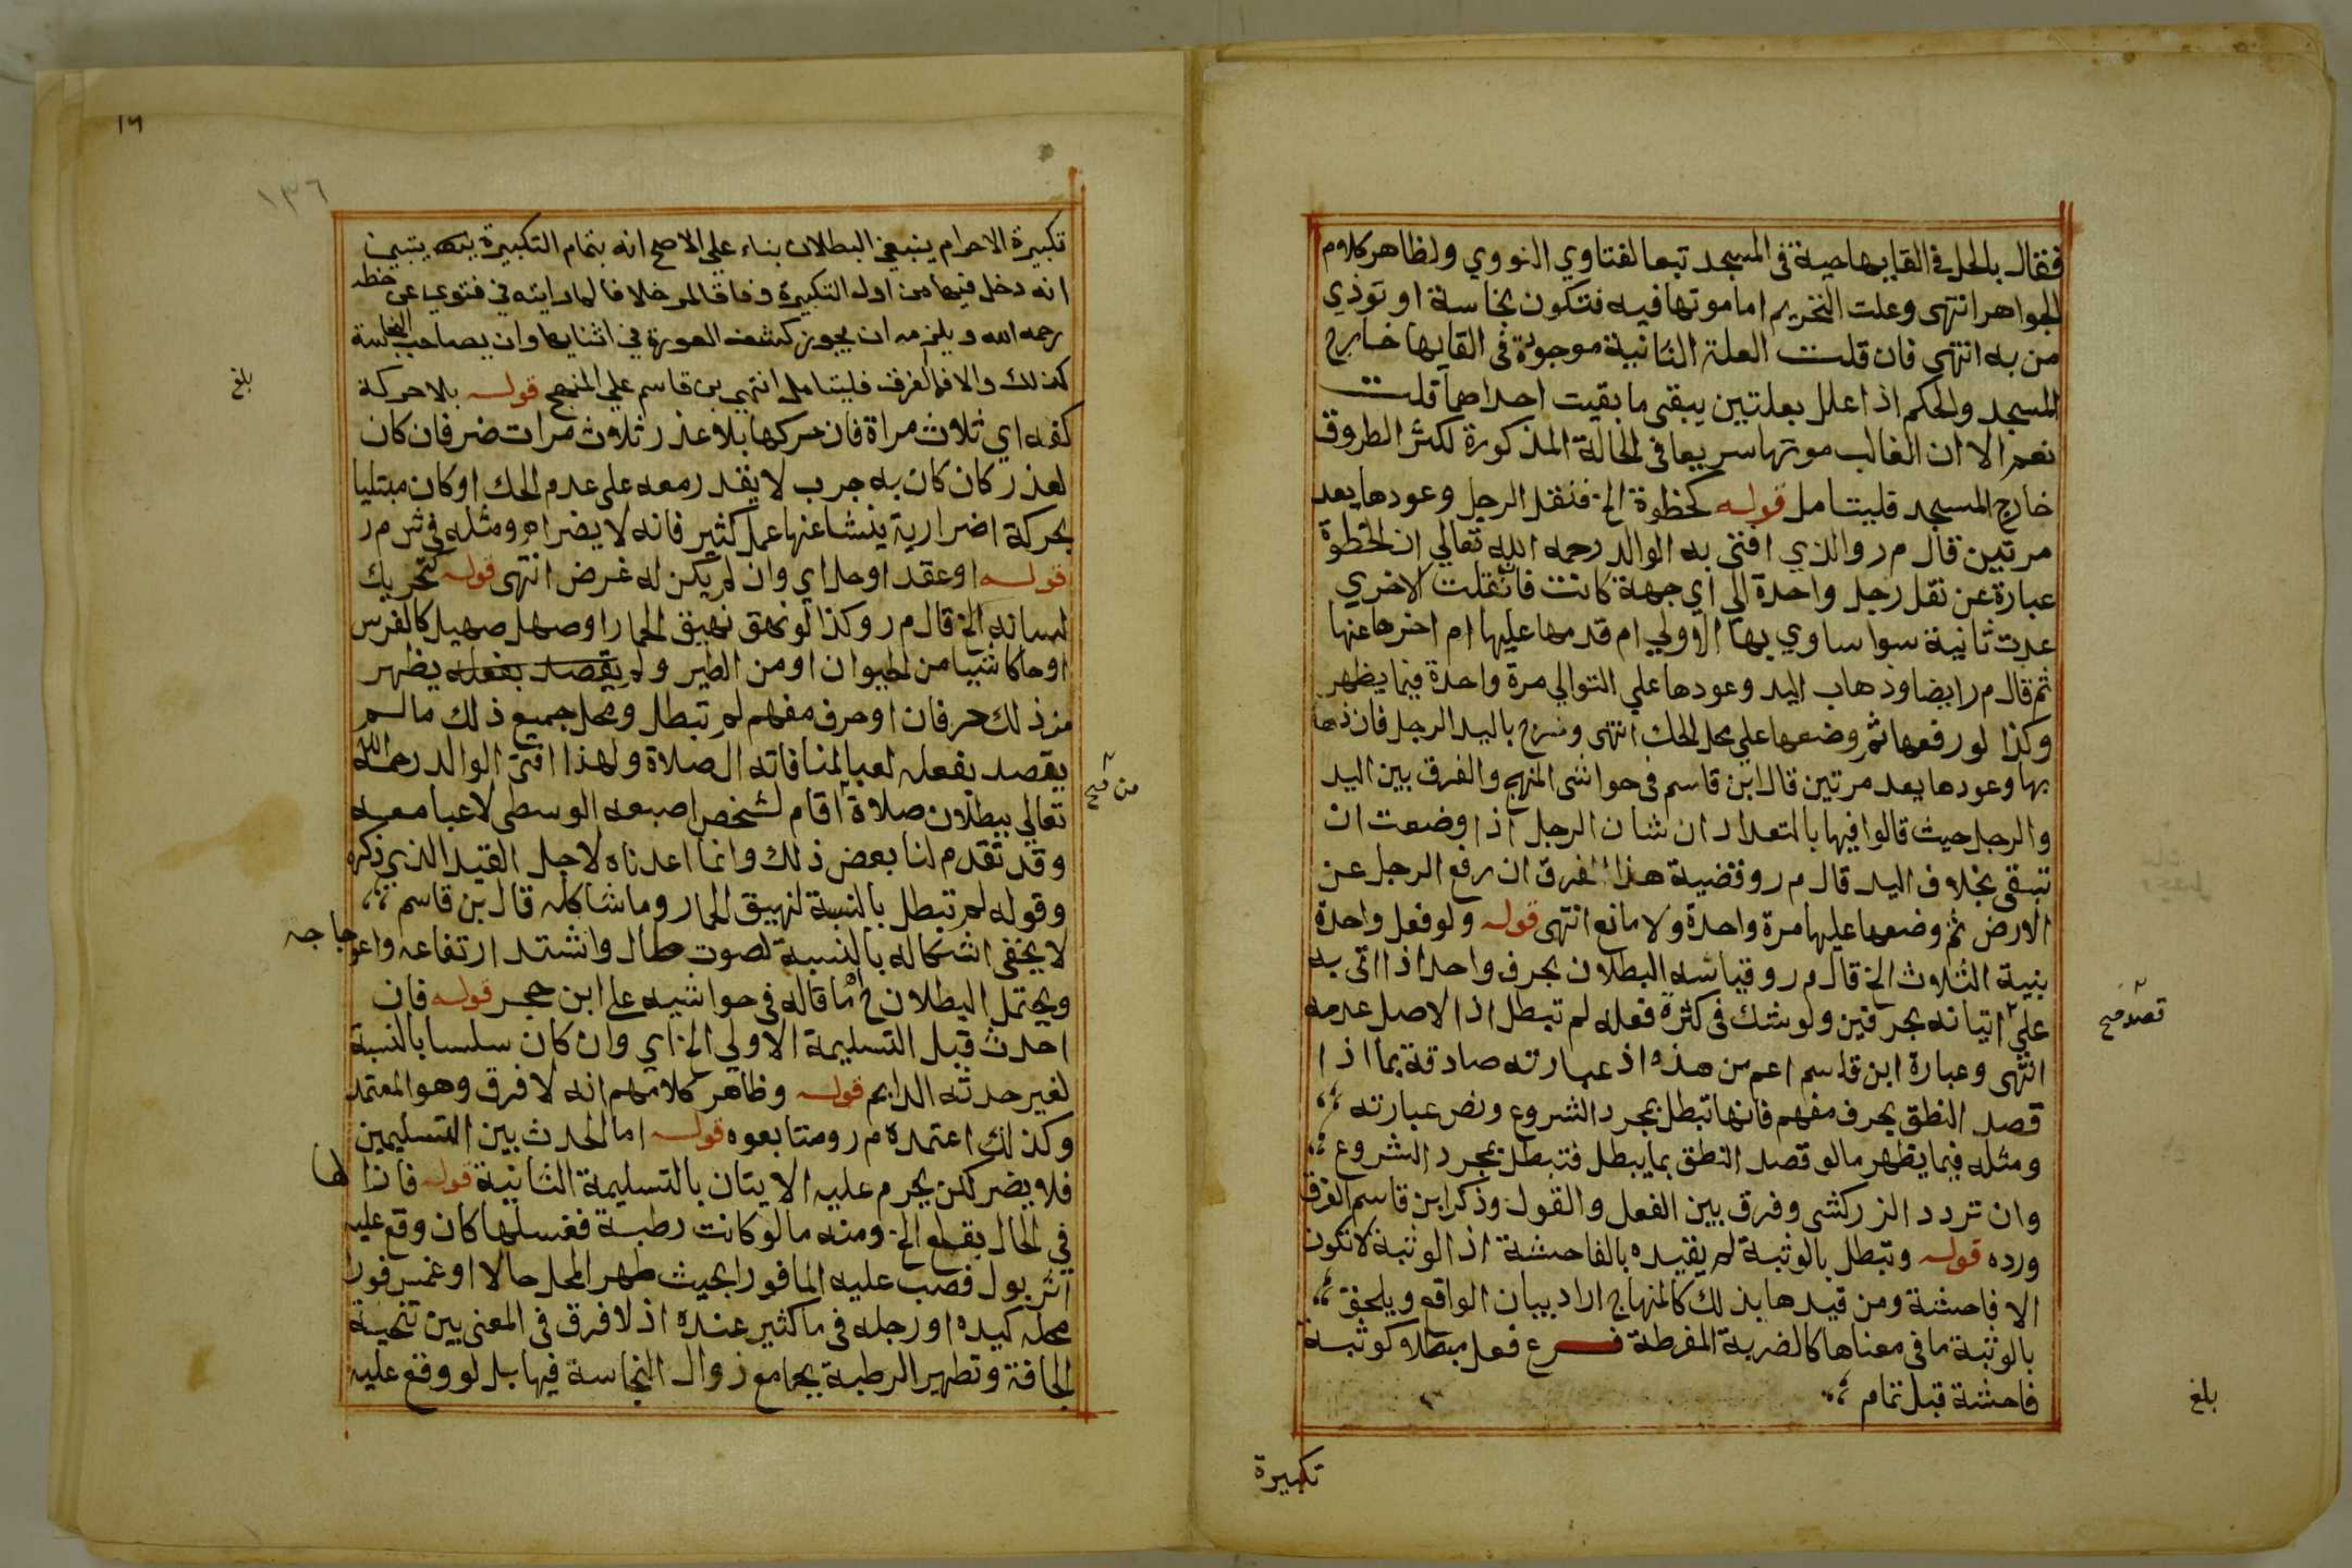 فقال بالحل في القايها حية في المسجد تبعا لفتاوي النووي ولظاهر كلام
الجواهر انتهى وعلت التحريم اما موتها فيه فتكون نجاسة او توذي
من به انتهى فان قلت العلة الثانية موجودة في القايها خارج
المسجد والحكم اذا علل بعلتين يبقى ما بقيت احداهما قلت
نعم الا ان الغالب موتها سريعا في الحالة المذكورة لكثر الطروق
خارج المسجد فليتامل قوله كخطوة الخ فنقل الرجل وعودها يعد
مرتين قال م ر والذي افتى به الوالد رحمه الله تعالي ان الخطوة
عبارة عن نقل رجل واحدة الي اي جهة كانت فان نقلت الاخري
عدت ثانية سوا ساوي بها الاولي ام قدمها عليها ام اخرها عنها
ثم قال م ر ايضا وذهاب اليد وعودها علي التوالي مرة واحدة فيما يظهر
وكذا لو رفعها ثم وضعها علي محل الحك انتهى وخرج باليد الرجل فان ذهابها
بها وعودها يعد مرتين قال ابن قاسم في حواشي المنهج والفرق بين اليد
والرجل حيث قالوا فيها بالتعداد ان شان الرجل اذا وضعت ان
تبقى بخلاف اليد قال م ر وقضية هذا الفرق ان رفع الرجل عن
الارض ثم وضعها عليها مرة واحدة ولا مانع انتهى قوله ولو فعل واحدة
بنية الثلاث الخ قال م ر وقياسه البطلان بحرف واحد اذا اتى به
علي اتيانه بحرفين ولو شك في كثرة فعله لم تبطل اذ الاصل عدمه
قصد صح
انتهى وعبارة ابن قاسم اعم من هذه اذ عبارته صادقة بما اذا
قصد النطق بحرف مفهم فانها تبطل بمجرد الشروع ونص عبارته
ومثله فيما يظهر ما لو قصد النطق بما يبطل فتبطل بمجرد الشروع
وان تردد الزركشي وفرق بين الفعل والقول وذكر ابن قاسم الفرق
ورده قوله وتبطل بالوثبة لم يقيده بالفاحشة اذ الوثبة لا تكون
الا فاحشة ومن قيدها بذلك كالمنهاج اراد بيان الواقع ويلحق
بالوثبة ما في معناها كالضربة المفرطة فرع فعل مبطلا كوثبة
فاحشة قبل تمام
بلغ
تكبيرة
١٦
١٣٦
تكبيرة الاحرام ينبغي البطلان بناء علي الاصح انه بتمام التكبيرة يتبين
انه دخل فيها من اول التكبيرة وفاقا لمر خلافا لما رايته في فتوي عن خطه
رحمه الله ويلزمه ان يجوز كشف العورة في اثنايها وان يصاحب النجاسة
كذلك والا فما الفرق فليتامل انتهي بن قاسم علي المنهج قوله بلا حركة
بلغ
كفه اي ثلاث مراة فان حركها بلا عذر ثلاث مرات ضر فان كان
لعذر كان كان به جرب لا يقدر معه على عدم الحك او كان مبتليا
بحركة اضرارية ينشا عنها عمل كثير فانه لا يضر اه ومثله في شرم ر
قوله او عقد او حل اي وان لم يكن له غرض انتهى قوله كتحريك
لسانه الخ قال م ر وكذا لو نهق نهيق الحمار او صهل صهيل كالفرس
او حاكا شيا من الحيوان او من الطير ولم يقصد بفعله يظهر
من ذلك حرفان او حرف مفهم لم تبطل ومحل جميع ذلك ما لم
يقصد بفعله لعبا لمنافاته الصلاة ولهذا افتى الوالد رحمه الله
تعالي ببطلان صلاة اقام لشخص اصبعه الوسطى لاعبا معه
من صح
وقد تقدم لنا بعض ذلك وانما اعدناه لاجل القيد الذي ذكره
وقوله لم تبطل بالنسبة لنهيق الحمار وما شاكله قال بن قاسم
لا يخفى اشكاله بالنسبة لصوت طال واشتد ارتفاعه واعوجاجه
ويحتمل البطلان ح اه ما قاله في حواشيه على ابن حجر قوله فان
احدث قبل التسليمة الاولي الخ اي وان كان سلسا بالنسبة
لغير حدثه الدايم قوله وظاهر كلامهم انه لا فرق وهو المعتمد
وكذلك اعتمده م ر ومتابعوه قوله اما الحدث بين التسليمين
فلا يضر لكن يحرم عليه الايتان بالتسليمة الثانية قوله فازالها
في الحال بقطع الخ ومنه ما لو كانت رطبة فغسلها كان وقع عليه
اثر بول فصب عليه الما فورا بحيث طهر المحل حالا او غمس فورا
محله كيده او رجله في ما كثير عنده اذ لا فرق في المعنى بين تنحية
الجافة وتطهير الرطبة بجامع زوال النجاسة فيها بل لو وقع عليه